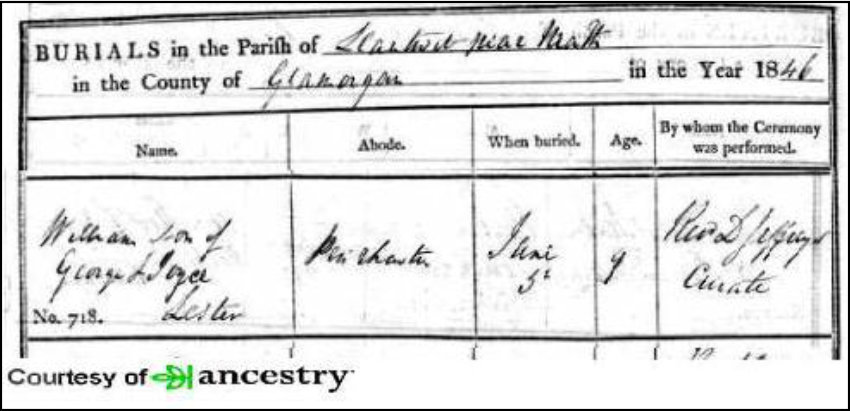 BURIALS in the Parish of Llantwit near Neath
in the County of Glamorgan in the Year 1846
Name. Abode. When buried. Age. By whom the Ceremony was performed.
William son of
George & Joyce
Lester
June
5t
9
Revd D Jeffreys
Curate
No. 718.
Courtesy of ancestry